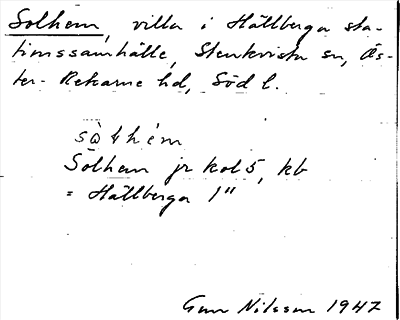 Solhem, villa i Hällberga sta-
tionssamhälle, Stenkvista sn, Ös-
ter-Rekarne hd, Söd l.
Solhem jr kol 5, kb
= Hällberga 1"
Gun Nilsson 1947